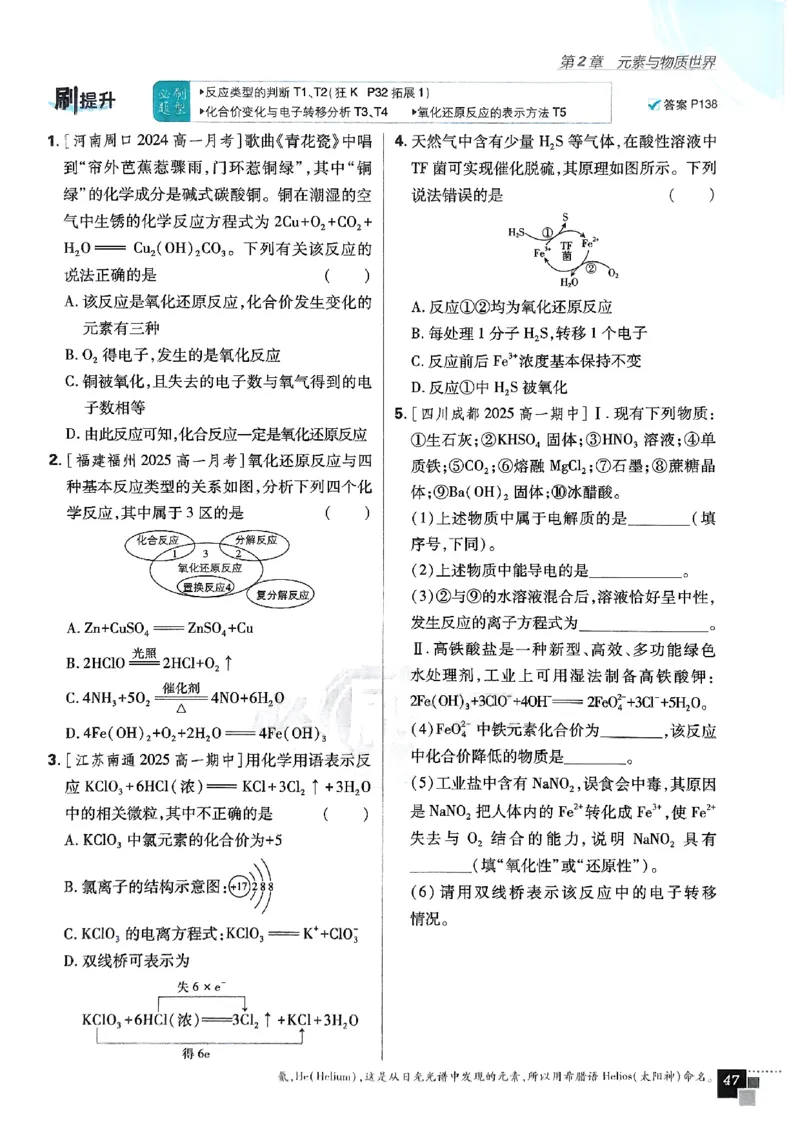 第2章 元素与物质世界
刷提升
必刷题型
▸反应类型的判断 T1、T2(狂K P32拓展1)
▸化合价变化与电子转移分析 T3、T4 ▸氧化还原反应的表示方法 T5
答案 P138
1.[河南周口 2024 高一月考]歌曲《青花瓷》中唱
到“帘外芭蕉惹骤雨,门环惹铜绿”,其中“铜
绿”的化学成分是碱式碳酸铜。铜在潮湿的空
气中生锈的化学反应方程式为 2Cu+O₂+CO₂+
H₂O══Cu₂(OH)₂CO₃。下列有关该反应的
说法正确的是 ( )
A.该反应是氧化还原反应,化合价发生变化的
元素有三种
B.O₂ 得电子,发生的是氧化反应
C.铜被氧化,且失去的电子数与氧气得到的电
子数相等
D.由此反应可知,化合反应一定是氧化还原反应
2.[福建福州 2025 高一月考]氧化还原反应与四
种基本反应类型的关系如图,分析下列四个化
学反应,其中属于 3 区的是 ( )
化合反应 分解反应
1 3 2
氧化还原反应
置换反应4
复分解反应
A.Zn+CuSO₄══ZnSO₄+Cu
光照
B.2HClO══2HCl+O₂↑
催化剂
C.4NH₃+5O₂══4NO+6H₂O
△
D.4Fe(OH)₂+O₂+2H₂O══4Fe(OH)₃
3.[江苏南通 2025 高一期中]用化学用语表示反
应 KClO₃+6HCl(浓)══KCl+3Cl₂↑+3H₂O
中的相关微粒,其中不正确的是 ( )
A.KClO₃ 中氯元素的化合价为+5
B.氯离子的结构示意图:+17 2 8 8
C.KClO₃ 的电离方程式:KClO₃══K⁺+ClO₃⁻
D.双线桥可表示为
失 6×e⁻
KClO₃+6HCl(浓)══3Cl₂↑+KCl+3H₂O
得 6e
4.天然气中含有少量 H₂S 等气体,在酸性溶液中
TF 菌可实现催化脱硫,其原理如图所示。下列
说法错误的是 ( )
S
H₂S ① Fe²⁺
Fe³⁺ TF
菌
② O₂
H₂O
A.反应①②均为氧化还原反应
B.每处理 1 分子 H₂S,转移 1 个电子
C.反应前后 Fe³⁺浓度基本保持不变
D.反应①中 H₂S 被氧化
5.[四川成都 2025 高一期中]Ⅰ.现有下列物质:
①生石灰;②KHSO₄ 固体;③HNO₃ 溶液;④单
质铁;⑤CO₂;⑥熔融 MgCl₂;⑦石墨;⑧蔗糖晶
体;⑨Ba(OH)₂ 固体;⑩冰醋酸。
(1)上述物质中属于电解质的是________(填
序号,下同)。
(2)上述物质中能导电的是____________。
(3)②与⑨的水溶液混合后,溶液恰好呈中性,
发生反应的离子方程式为________________。
Ⅱ.高铁酸盐是一种新型、高效、多功能绿色
水处理剂,工业上可用湿法制备高铁酸钾:
2Fe(OH)₃+3ClO⁻+4OH⁻══2FeO₄²⁻+3Cl⁻+5H₂O。
(4)FeO₄²⁻ 中铁元素化合价为________,该反应
中化合价降低的物质是________。
(5)工业盐中含有 NaNO₂,误食会中毒,其原因
是 NaNO₂ 把人体内的 Fe²⁺转化成 Fe³⁺,使 Fe²⁺
失去与 O₂ 结合的能力,说明 NaNO₂ 具有
________(填“氧化性”或“还原性”)。
(6)请用双线桥表示该反应中的电子转移
情况。
氦,He(Helium),这是从日光光谱中发现的元素,所以用希腊语 Helios(太阳神)命名。
47